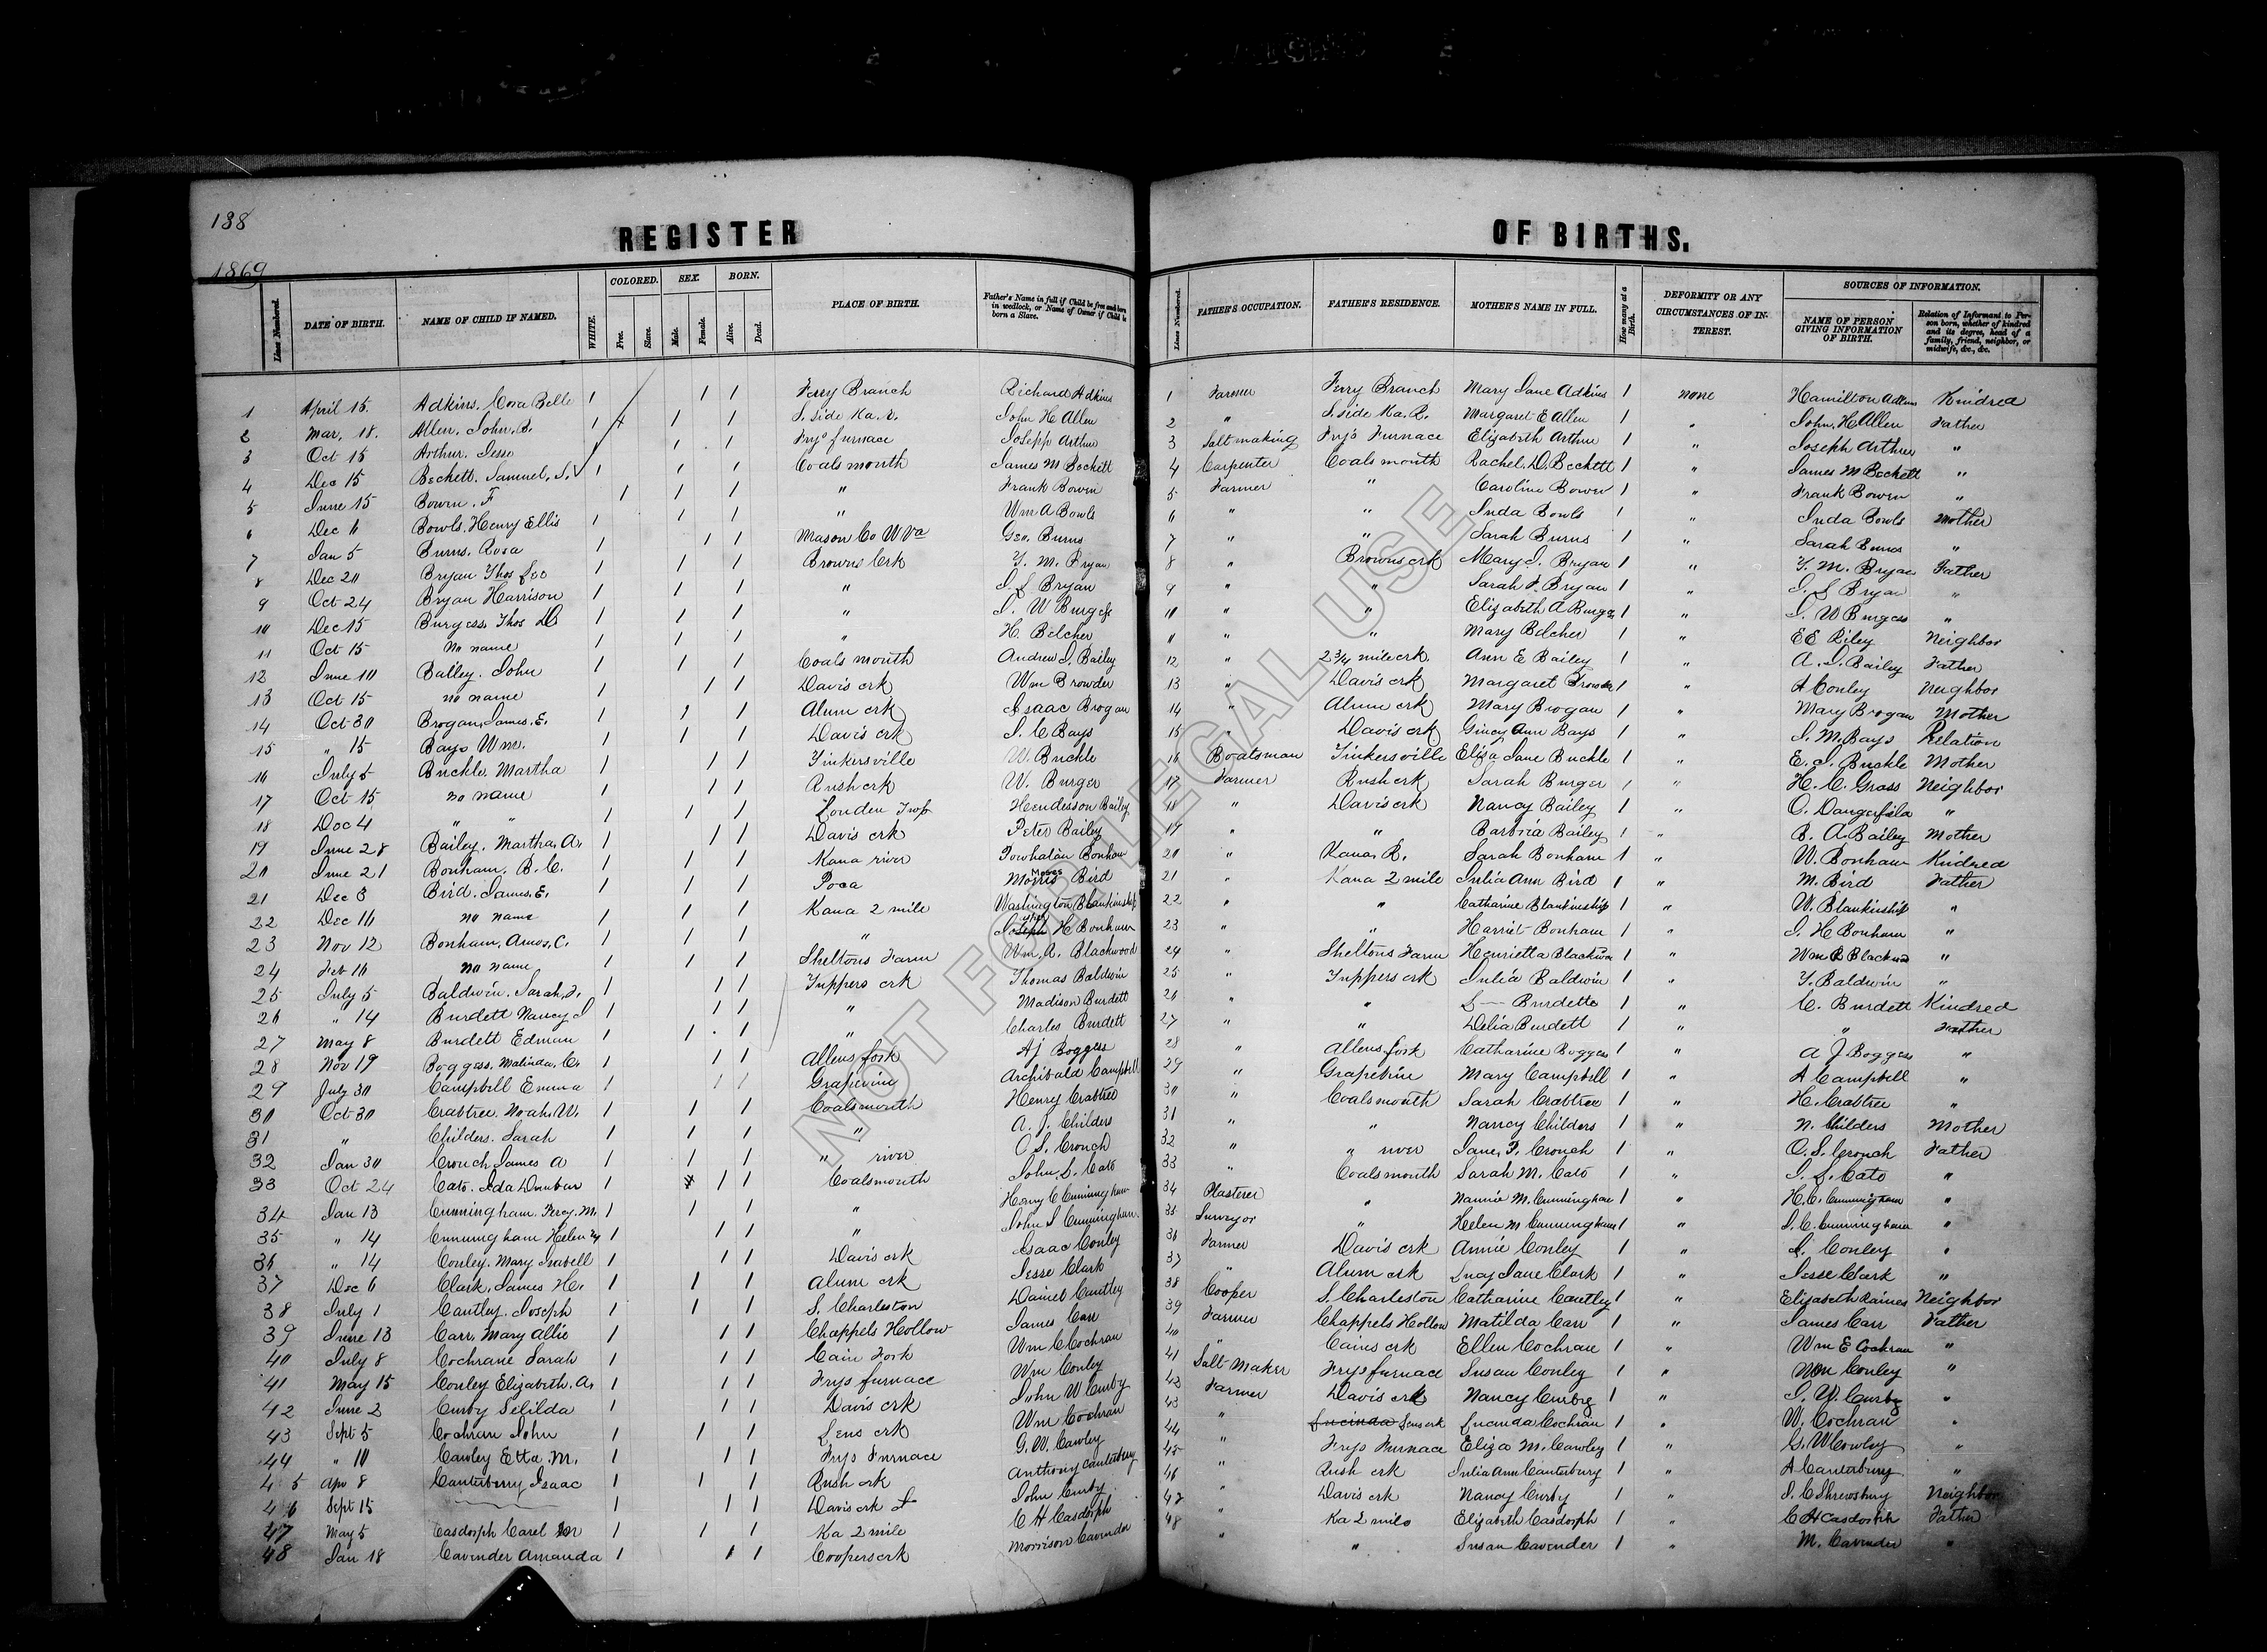 138
REGISTER OF BIRTHS.
1869
Line Numbered. DATE OF BIRTH. NAME OF CHILD IF NAMED. WHITE. COLORED. Free. Slave. SEX. Male. Female. BORN. Alive. Dead. PLACE OF BIRTH. Father's Name in full if Child be free and born in wedlock, or Name of Owner if Child be born a Slave.
Line Numbered. FATHER'S OCCUPATION. FATHER'S RESIDENCE. MOTHER'S NAME IN FULL. How many at a Birth. DEFORMITY OR ANY CIRCUMSTANCES OF INTEREST. SOURCES OF INFORMATION. NAME OF PERSON GIVING INFORMATION OF BIRTH. Relation of Informant to Person born, whether of kindred and its degree, head of a family, friend, neighbor, or midwife, &c., &c.
1 April 15. Adkins, Cora Belle 1 1 1 Ferry Branch Richard Adkins 1 Farmer Ferry Branch Mary Jane Adkins 1 none Hamilton Adkins Kindred
2 Mar. 18. Allen, John, B. 1 1 S. side Ka. R. John H Allen 2 " S. side Ka. R. Margaret E Allen 1 " John, H Allen Father
3 Oct 15 Arthur. Jesse 1 1 1 Frys furnace Joseph Arthur 3 Salt making Frys Furnace Elizabeth Arthur 1 " Joseph Arthur "
4 Dec 15 Beckett. Samuel, S. 1 1 1 Coalsmouth James M Beckett 4 Carpenter Coalsmouth Rachel. D. Beckett 1 " James M Beckett "
5 June 15 Bowen. F 1 1 1 " Frank Bowen 5 Farmer " Caroline Bowen 1 " Frank Bowen "
6 Dec 6 Bowls. Henry Ellis 1 1 1 " Wm A Bowls 6 " " Inda Bowls 1 " Inda Bowls Mother
7 Jan 5 Burns. Rosa 1 1 1 Mason Co W Va Geo. Burns 7 " " Sarah Burns 1 " Sarah Burns "
8 Dec 20 Bryan Thos Lee 1 1 1 Browns Crk T. M. Bryan 8 " Browns crk Mary J. Bryan 1 " T. M. Bryan Father
9 Oct 24 Bryan Harrison 1 1 1 " J. L Bryan 9 " " Sarah F. Bryan 1 " J. L Bryan "
10 Dec 15 Burgess, Thos 1 1 1 " J. W Burgess 10 " " Elizabeth A Burgess 1 " J. W Burgess "
11 Oct 15 No name 1 1 1 " H. Belcher 11 " " Mary Belcher 1 " E E Riley Neighbor
12 June 10 Bailey. John 1 1 1 Coalsmouth Andrew J. Bailey 12 " 2 3/4 mile crk. Ann E Bailey 1 " A. J. Bailey Father
13 Oct 15 no name 1 1 1 Davis crk Wm Browder 13 " Davis crk Margaret Browder 1 " A Conley Neighbor
14 Oct 30 Brogan, James, E. 1 1 1 Alum crk Isaac Brogan 14 " Alum crk Mary Brogan 1 " Mary Brogan Mother
15 " 15 Bays Wm. 1 1 1 Davis crk J. C Bays 15 " Davis crk Gincy Ann Bays 1 " J. M. Bays Relation
16 July 5 Buckle. Martha 1 1 1 Tinkersville W. Buckle 16 Boatsman Tinkersville Eliza Jane Buckle 1 " E. J. Buckle Mother
17 Oct 15 no name 1 1 1 Rush crk W. Burger 17 Farmer Rush crk Sarah Burger 1 " H. C. Grass Neighbor
18 Dec 4 " " 1 1 1 Louden Twp Henderson Bailey 18 " Davis crk Nancy Bailey 1 " O. Dangerfield "
19 June 28 Bailey. Martha, A. 1 1 1 Davis crk Peter Bailey 19 " " Barbria Bailey 1 " B. A. Bailey Mother
20 June 21 Bonham. B. C. 1 1 1 Kana river Powhatan Bonham 20 " Kana. R. Sarah Bonham 1 " W. Bonham Kindred
21 Dec 3 Bird. James, E. 1 1 1 Poca Morris Moses Bird 21 " Kana 2 mile Julia Ann Bird 1 " M. Bird Father
22 Dec 10 no name 1 1 1 Kana 2 mile Washington Blankinship 22 " " Catharine Blankinship 1 " W. Blankinship "
23 Nov 12 Bonham, Amos, C. 1 1 1 " Joseph H Bonham 23 " " Harriet Bonham 1 " J. H Bonham "
24 Feb 10 no name 1 1 1 Sheltons Farm Wm. A. Blackwood 24 " Sheltons Farm Henrietta Blackwood 1 " Wm Blackwood "
25 July 5 Baldwin. Sarah, F. 1 1 1 Tuppers crk Thomas Baldwin 25 " Tuppers crk Julia Baldwin 1 " T. Baldwin "
26 " 14 Burdett Nancy J 1 1 1 " Madison Burdett 26 " " L— Burdette 1 " C. Burdett Kindred
27 May 8 Burdett Edman 1 1 1 " Charles Burdett 27 " " Delia Burdett 1 " " Father
28 Nov 19 Boggess. Malinda, C. 1 1 1 Allens fork AJ Boggess 28 " Allens fork Catharine Boggess 1 " A J. Boggess "
29 July 30 Campbell Emma 1 1 1 Grapevine Archibald Campbell 29 " Grapevine Mary Campbell 1 " A Campbell "
30 Oct 30 Crabtree. Noah, W. 1 1 1 Coalsmouth Henry Crabtree 30 " Coalsmouth Sarah Crabtree 1 " H. Crabtree "
31 " Childers. Sarah 1 1 1 " A. J. Childers 31 " " Nancy Childers 1 " N. Childers Mother
32 Jan 30 Crouch James A 1 1 1 " river O S. Crouch 32 " " river Jane, F. Crouch 1 " O. S. Crouch Father
33 Oct 24 Cato. Ida Dunbar 1 1 1 Coalsmouth John, S. Cato 33 " Coalsmouth Sarah M. Cato 1 " J. S. Cato "
34 Jan 13 Cunningham. Percy. M. 1 1 1 " Henry C Cunningham 34 Plasterer " Nannie M. Cunningham 1 " H. C. Cunningham "
35 " 14 Cunningham Helen 1 1 1 " John S Cunningham 35 Surveyor " Helen M Cunningham 1 " J. C. Cunningham "
36 " 14 Conley. Mary Isabell 1 1 1 Davis crk Isaac Conley 36 Farmer Davis crk Annie Conley 1 " I. Conley "
37 Dec 6 Clark, James H. 1 1 1 Alum crk Jesse Clark 37 " Alum crk Lucy Jane Clark 1 " Jesse Clark "
38 July 1 Cantley. Joseph 1 1 1 S. Charleston Daniel Cantley 38 Cooper S. Charleston Catharine Cantley 1 " Elizabeth Raines Neighbor
39 June 13 Carr, Mary Allie 1 1 1 Chappels Hollow James Carr 39 Farmer Chappels Hollow Matilda Carr 1 " James Carr Father
40 July 8 Cochrane Sarah 1 1 1 Cain Fork Wm C Cochran 40 " Cains crk Ellen Cochran 1 " Wm E Cochran "
41 May 15 Conley Elizabeth. A. 1 1 1 Frys furnace Wm Conley 41 Salt Maker Frys furnace Susan Conley 1 " Wm Conley "
42 June 2 Curby Selilda 1 1 1 Davis crk John W Curby 42 Farmer Davis crk Nancy Curby 1 " J. W. Curby "
43 Sept 5 Cochran John 1 1 1 Lens crk Wm Cochran 43 " Lens crk Lucinda Cochran 1 " W. Cochran "
44 " 10 Cawley Etta. M. 1 1 1 Frys Furnace G. W. Cawley 44 " Frys Furnace Eliza M. Cawley 1 " G. W Cowley "
45 Apr 8 Canterbury Isaac 1 1 1 Rush crk Anthony Canterbury 45 " Rush crk Julia Ann Canterbury 1 " A Canterbury "
46 Sept 15 1 1 1 Davis crk John Curby 46 " Davis crk Nancy Curby 1 " J. C Shrewsbury Neighbor
47 May 5 Casdorph Carel 1 1 1 Ka 2 mile C H Casdorph 47 " Ka 2 mile Elizabeth Casdorph 1 " C H Casdorph Father
48 Jan 18 Cavender Amanda 1 1 1 Coopers crk Morrison Cavender 48 " " Susan Cavender 1 " M. Cavender "
NOT FOR LEGAL USE